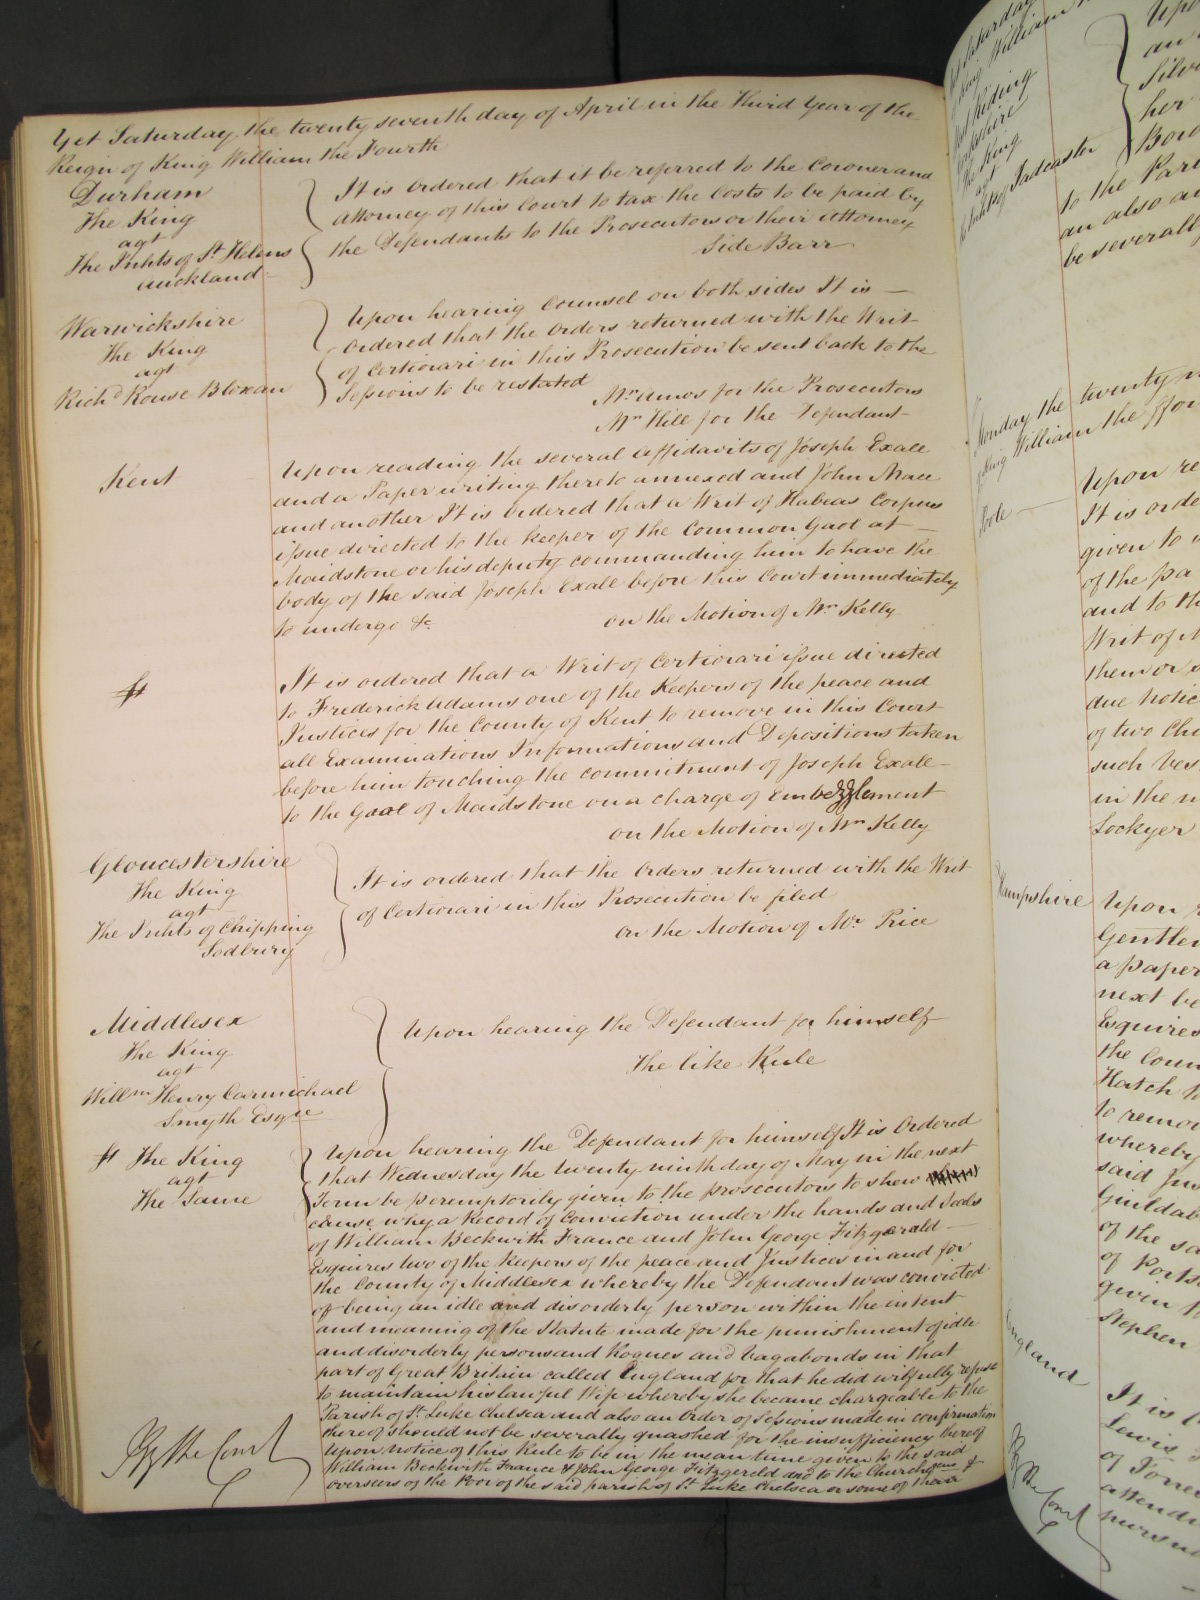 Yet Saturday the twenty seventh day of April in the Third Year of the
Reign of King William the Fourth
Durham
The King
agt
The Inhts of St Helens
Auckland
It is ordered that it be referred to the Coroner and
Attorney of this Court to tax the Costs to be paid by
the Defendants to the Prosecutors or their Attorney
Side Barr
Warwickshire
The King
agt
Richd Rouse Bloxam
Upon hearing Counsel on both sides It is
ordered that the Orders returned with the Writ
of Certiorari in this Prosecution be sent back to the
Sessions to be restated
Mr Amos for the Prosecutors
Mr Hill for the Defendant
Kent
Upon reading the several Affidavits of Joseph Exall
and a Paper writing thereto annexed and John Mace
and another It is ordered that a Writ of Habeas Corpus
issue directed to the keeper of the Common Gaol at
Maidstone or his deputy commanding him to have the
body of the said Joseph Exall before this Court immediately
to undergo &c
on the Motion of Mr Kelly
It is ordered that a Writ of Certiorari issue directed
to Frederick Adams one of the Keepers of the peace and
Justices for the County of Kent to remove in this Court
all Examinations Informations and Depositions taken
before him touching the commitment of Joseph Exall
to the Gaol of Maidstone on a charge of Embezzlement
on the Motion of Mr Kelly
Gloucestershire
The King
agt
The Inhts of Chipping
Sodbury
It is ordered that the Orders returned with the Writ
of Certiorari in this Prosecution be filed
on the Motion of Mr Price
Middlesex
The King
agt
Willm Henry Carmichael
Smyth Esqre
Upon hearing the Defendant for himself
The like Rule
The King
agt
The Same
Upon hearing the Defendant for himself It is Ordered
that Wednesday the twenty ninth day of May in the next
Term be peremptorily given to the prosecutors to shew
cause why a Record of Conviction under the hands and Seals
of William Beckwith France and John George Fitzgerald
Esquires two of the Keepers of the peace and Justices in and for
the County of Middlesex whereby the Defendant was convicted
of being an idle and disorderly person within the intent
and meaning of the Statute made for the punishment of idle
and disorderly persons and Rogues and Vagabonds in that
part of Great Britain called England for that he did wilfully refuse
to maintain his lawful Wife whereby she became chargeable to the
Parish of St Luke Chelsea and also an Order of Sessions made in confirmation
thereof should not be severally quashed for the insufficiency thereof
Upon notice of this Rule to be in the mean time given to the said
William Beckwith France & John George Fitzgerald and to the Churchwens &
overseers of the Poor of the said parish of St Luke Chelsea or some of them
By the Court
King William
The King
agt
Tadcaster
her
to the
an also
be severally
Monday the twenty
King William the
Upon
It is
given to
of the
and to th
Writ of
them or
due notic
of two
such
in the
Lockyer
Hampshire
Upon
Gentle
a paper
next be
Esquires
the Coun
Hatch
to remo
whereby
said Jus
Guildab
of the sa
of Ports
given
Stephen
England
It is
Lewis
of
attendi
pursu
By the Court